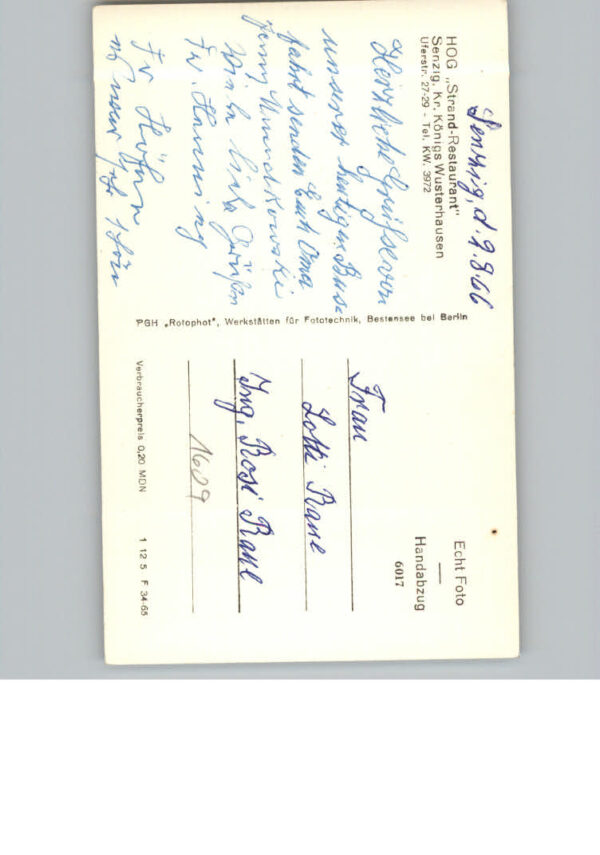 HOG „Strand-Restaurant"
Senzig, Kr. Königs Wusterhausen
Uferstr. 27-29 - Tel. KW. 3972
Senzig, d. 9.8.66
Herzliche Grüße von
unserer heutigen Bus-
fahrt senden Euch Oma
Jenny
Liebe Grüßen
Fr. Henning
Fr. Höhn
PGH „Rotophot", Werkstätten für Fototechnik, Bestensee bei Berlin
Echt Foto
Handabzug
6017
Frau
Lotti Rane
Ing. Rosi Rane
1609
Verbraucherpreis 0,20 MDN
1 12 5 F 34-65